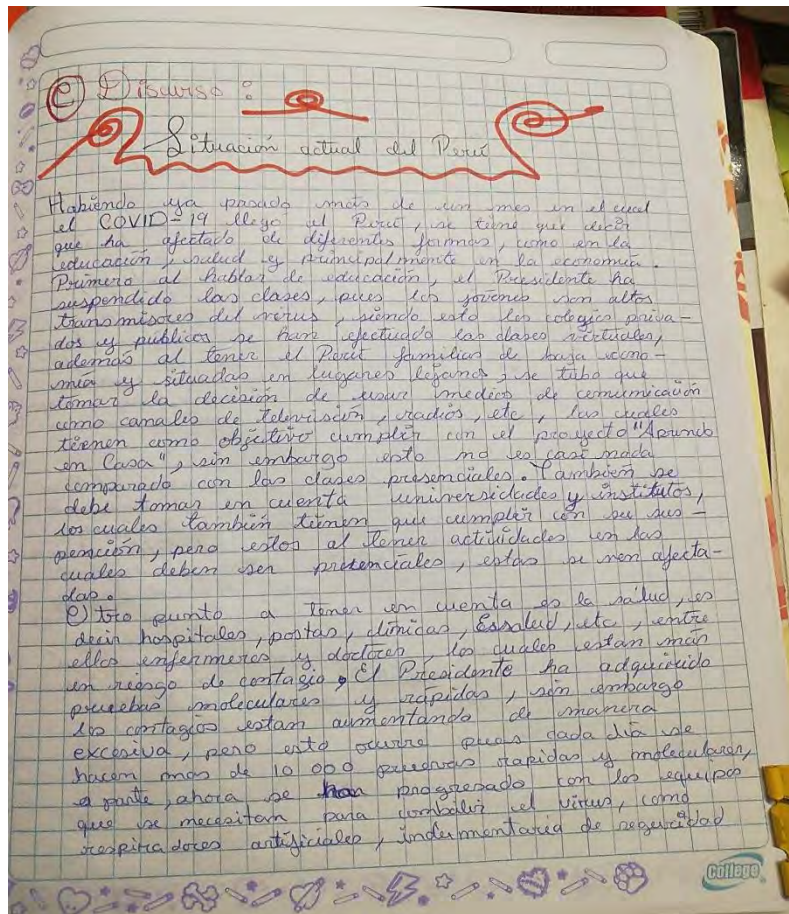 e) Discurso:
Situación actual del Perú
Habiendo ya pasado más de un mes en el cual
el COVID-19 llego al Perú, se tiene que decir
que ha afectado de diferentes formas, como en la
educación, salud y principalmente en la economía.
Primero al hablar de educación, el Presidente ha
suspendido las clases, pues los jóvenes son altos
transmisores del virus, siendo esto los colegios priva-
dos y públicos se han efectuado las clases virtuales,
además al tener el Perú familias de baja econo-
mía y situadas en lugares lejanos, se tubo que
tomar la decisión de usar medios de comunicación
como canales de televisión, radios, etc, los cuales
tienen como objetivo cumplir con el proyecto "Aprendo
en Casa", sin embargo esto no es casi nada
comparado con las clases presenciales. También se
debe tomar en cuenta universidades y institutos,
los cuales también tienen que cumplir con su sus-
pención, pero estos al tener actividades en las
cuales deben ser presenciales, estas se ven afecta-
das.
Otro punto a tener en cuenta es la salud, es
decir hospitales, postas, clínicas, Essalud, etc, entre
ellos enfermeros y doctores, los cuales estan más
en riesgo de contagio. El Presidente ha adquirido
pruebas moleculares y rápidas, sin embargo
los contagios estan aumentando de manera
excesiva, pero esto ocurre pues cada día se
hacen más de 10 000 pruevas rapidas y moleculares,
a parte, ahora se han progresado con los equipos
que se necesitan para combatir el virus, como
respiradores artificiales, indumentaria de seguridad
College